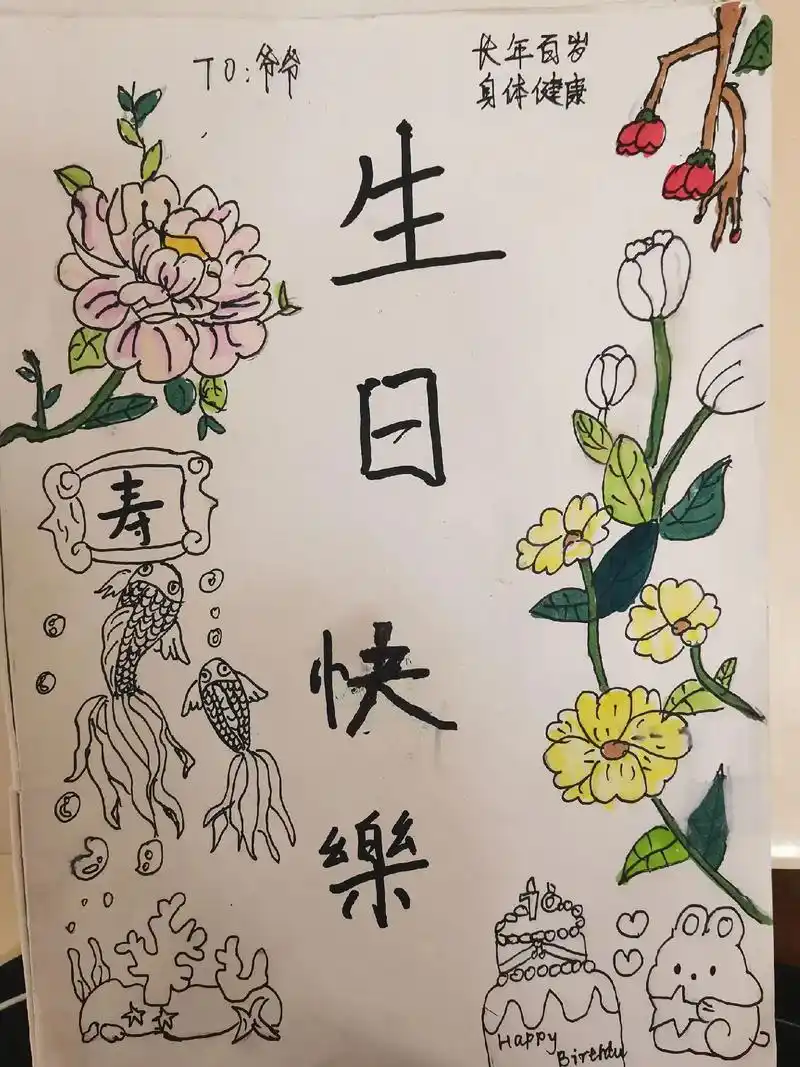 TO:爷爷
长年百岁
身体健康
生
日
快
樂
寿
70
Happy
Birthday